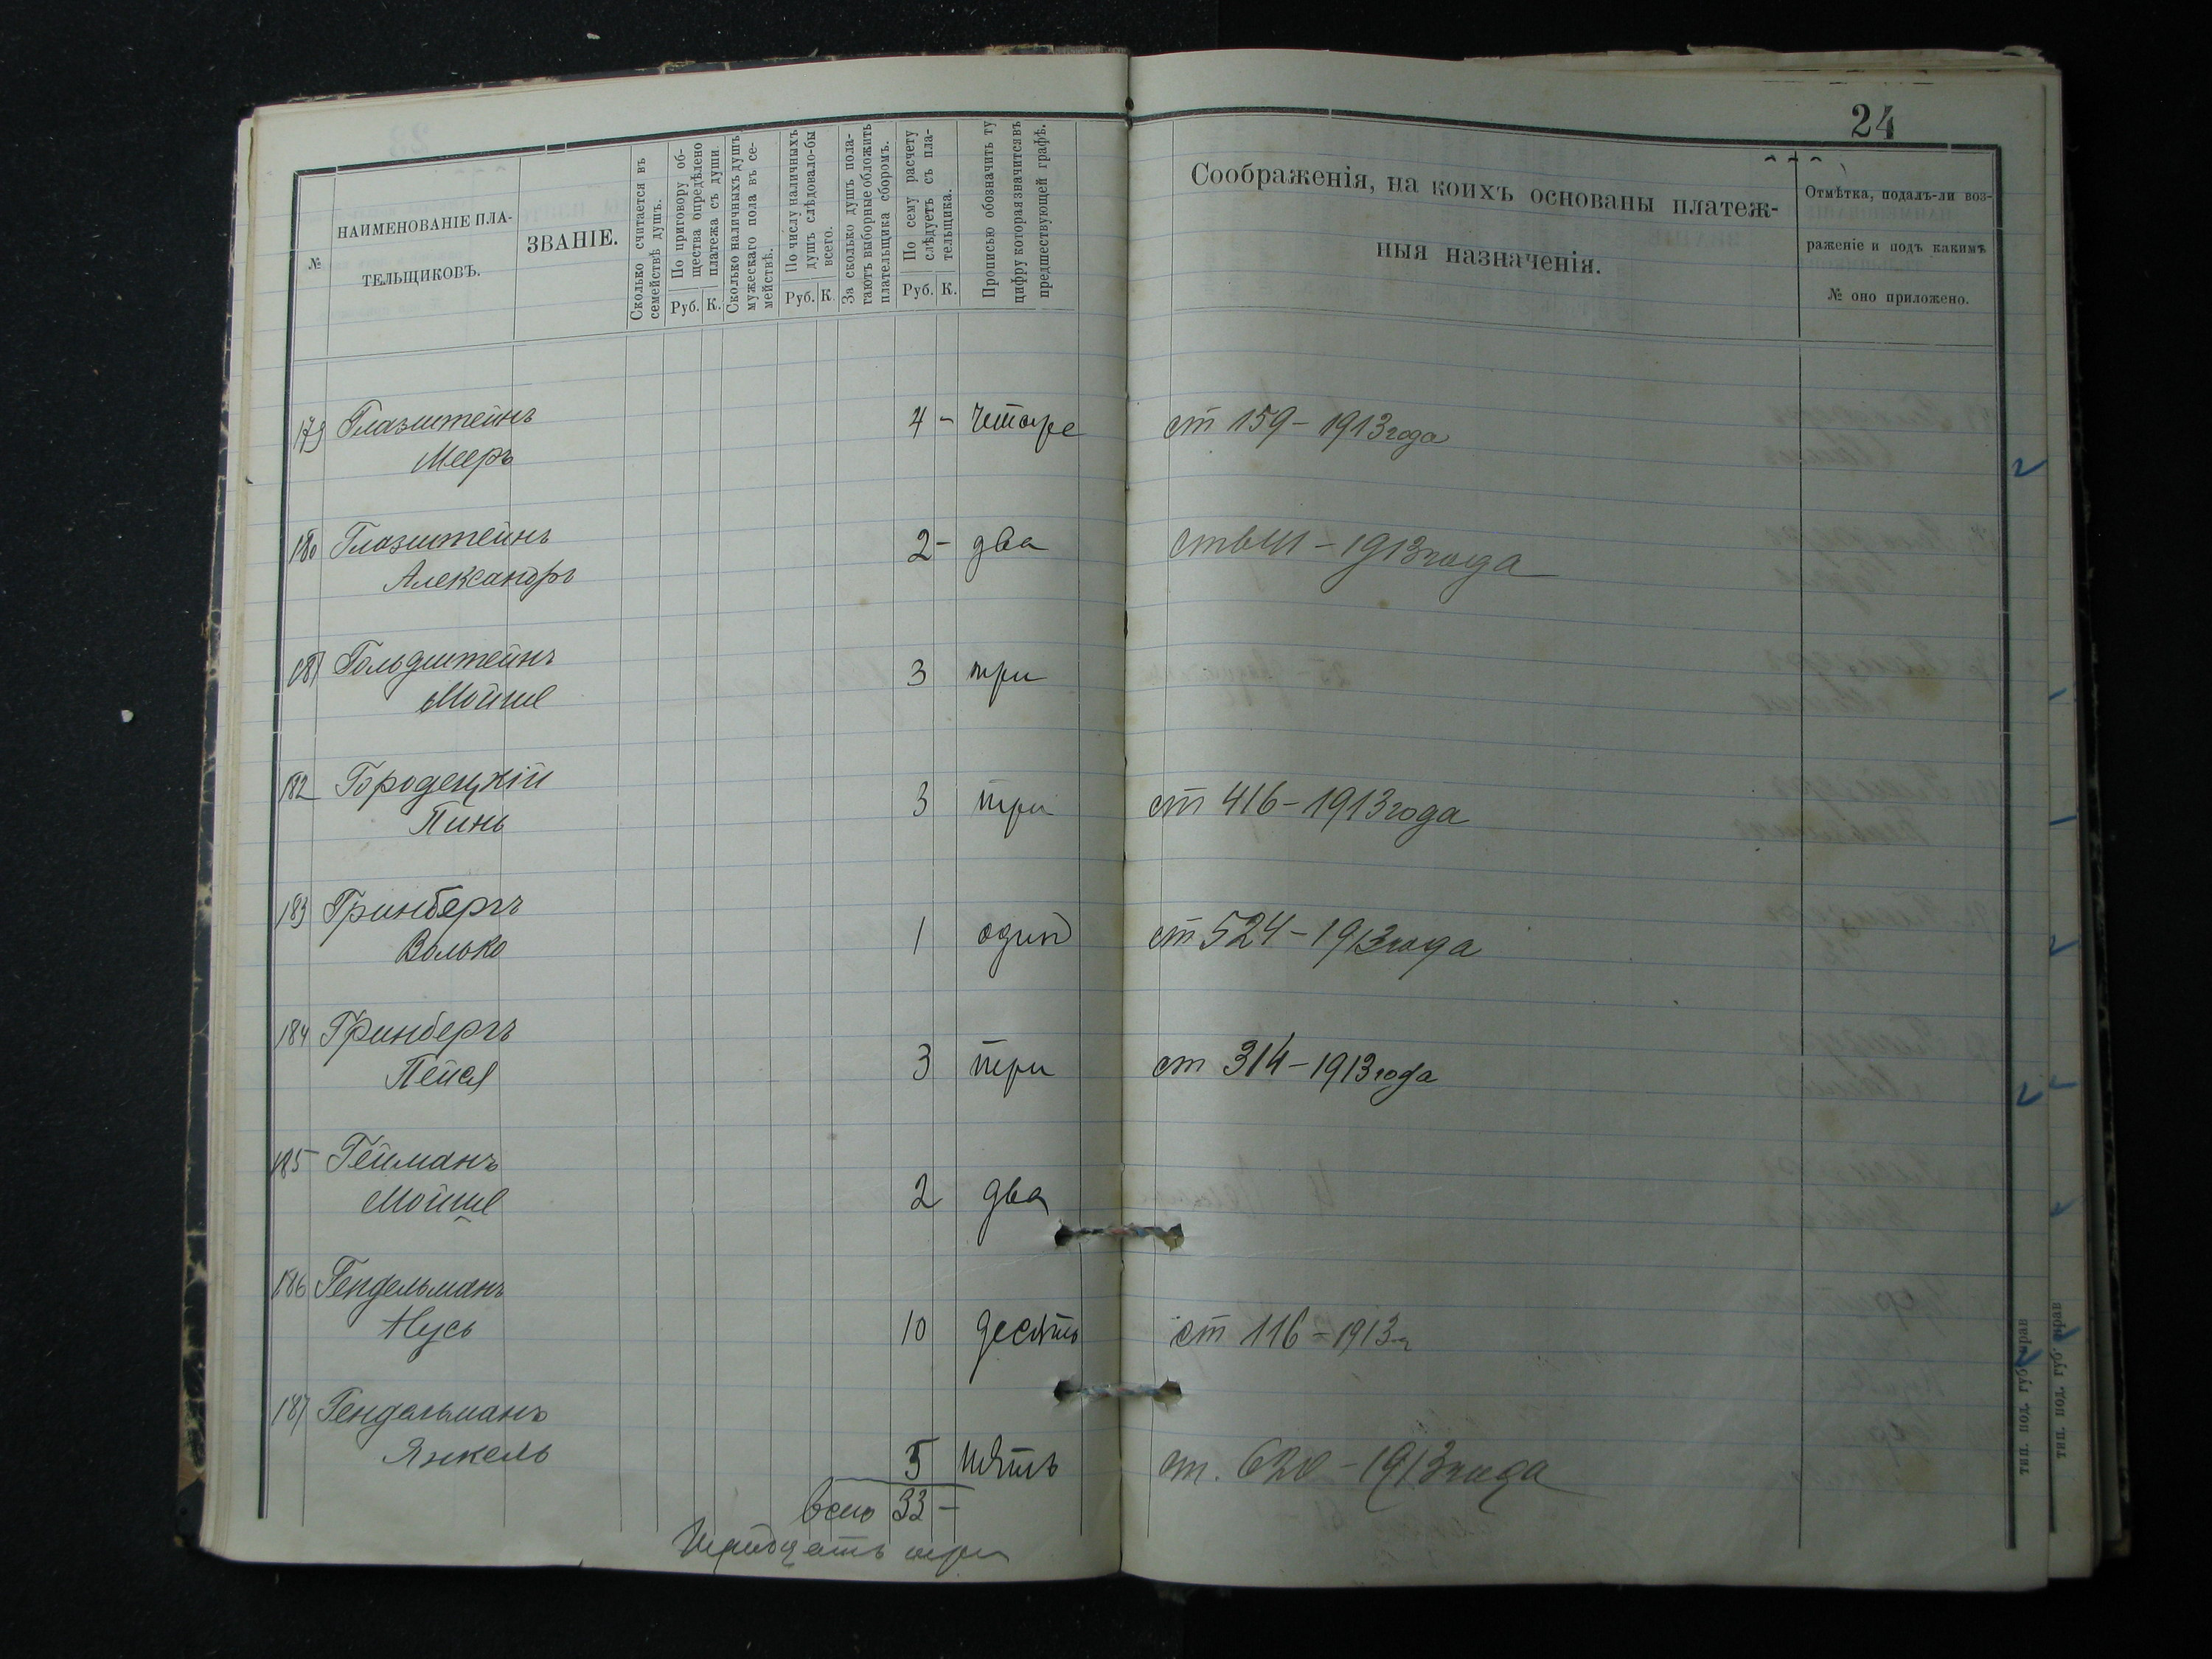 24
№
НАИМЕНОВАНІЕ ПЛА-
ТЕЛЬЩИКОВЪ.
ЗВАНІЕ.
Сколько считается въ
семействѣ душъ.
По приговору об-
щества опредѣлено
платежа съ души
Руб. К.
Сколько наличныхъ душъ
мужескаго пола въ се-
мействѣ.
По числу наличныхъ
душъ слѣдовало-бы
всего.
Руб. К.
За сколько душъ пола-
гаютъ выборные обложить
плательщика сборомъ.
По сему расчету
слѣдуетъ съ пла-
тельщика.
Руб. К.
Прописью обозначить ту
цифру которая значится въ
предшествующей графѣ.
Соображенія, на коихъ основаны платеж-
ныя назначенія.
Отмѣтка, подалъ-ли воз-
раженіе и подъ какимъ
№ оно приложено.
179 Глазштейнъ 4 - четыре ст 159 - 1913 года
Мееръ
180 Глазштейнъ 2 - два 1913 года
Александръ
181 Гольдштейнъ 3 три
Мойше
182 Городецкій 3 три ст 416 - 1913 года
Пинь
183 Гринбергъ 1 один ст 524 - 1913 года
Волько
184 Гринбергъ 3 три ст 314 - 1913 года
Пейся
185 Гейманъ 2 два
Мойше
186 Гендельманъ 10 десять ст 116 - 1913 г
Нусь
187 Гендельманъ
Янкель 5 пять ст. 620 - 1913 года
всего 33 -
Тридцать три
тип. под. губ. прав
тип. под. губ. прав